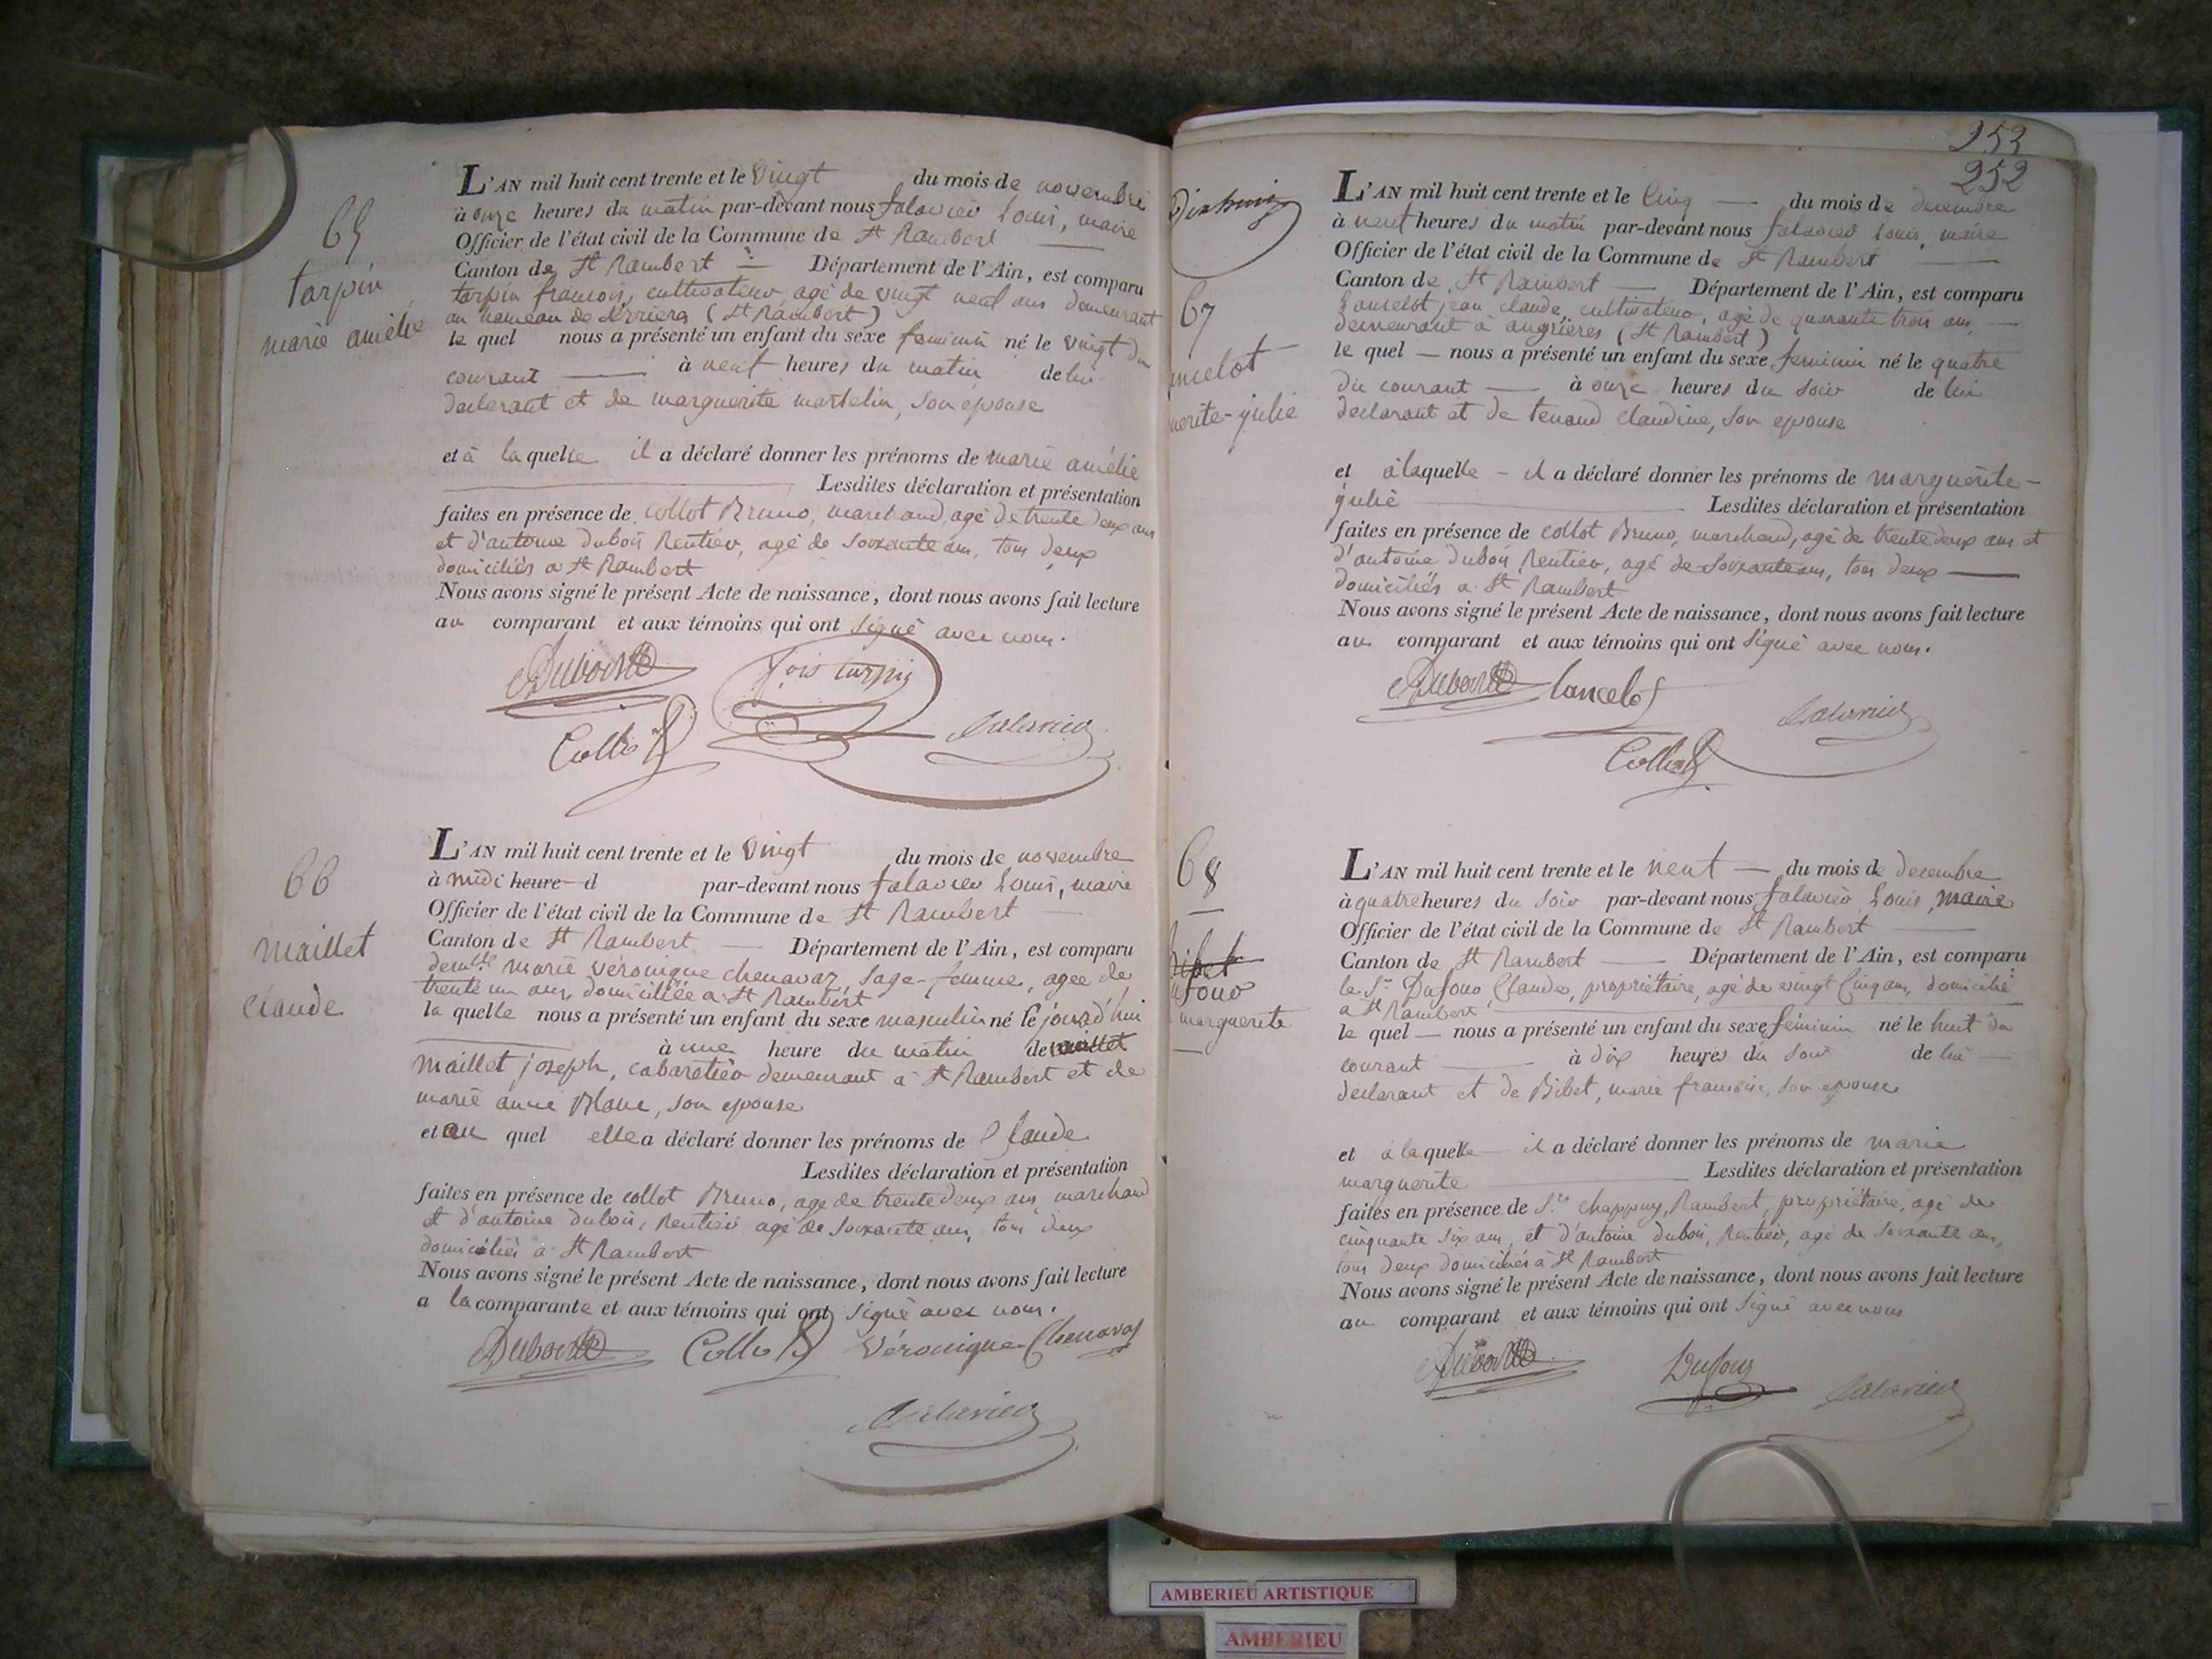 65
tarpin
marie amélie
L'AN mil huit cent trente et le vingt du mois de novembre
à onze heures du matin par-devant nous falavier Louis, maire
Officier de l'état civil de la Commune de St Rambert
Canton de St Rambert Département de l'Ain, est comparu
tarpin francois, cultivateur, agé de vingt neuf ans demeurant
au hameau de (St Rambert)
le quel nous a présenté un enfant du sexe feminin né le vingt du
courant à neuf heures du matin de lui
declarant et de marguerite martelin, son epouse
et à laquelle il a déclaré donner les prénoms de marie amélie
Lesdites déclaration et présentation
faites en présence de collot Bruno, marchand, agé de trente deux ans
et d'antoine dubois Rentier, agé de soixante ans, tous deux
domiciliés a St Rambert
Nous avons signé le présent Acte de naissance, dont nous avons fait lecture
au comparant et aux témoins qui ont signé avec nous.
Dubois
fois tarpin
Collot
falavier
66
maillet
claude
L'AN mil huit cent trente et le vingt du mois de novembre
à midi heure d par-devant nous falavier Louis, maire
Officier de l'état civil de la Commune de St Rambert
Canton de St Rambert Département de l'Ain, est comparu
demlle marie véronique chenavaz, sage-femme, agee de
trente un ans, domiciliée a St Rambert
la quelle nous a présenté un enfant du sexe masculin né le jourd'hui
à une heure du matin de maillet
maillet joseph, cabaretier demeurant à St Rambert et de
marie anne Blanc, son epouse
et au quel elle a déclaré donner les prénoms de Claude
Lesdites déclaration et présentation
faites en présence de collot Bruno, age de trente deux ans, marchand
et d'antoine dubois, Rentier agé de soixante ans, tous deux
domiciliés à St Rambert
Nous avons signé le présent Acte de naissance, dont nous avons fait lecture
a la comparante et aux témoins qui ont signé avec nous.
Dubois Collot Véronique Chenavaz
falavier
253
252
67
ancelot
uerite-julie
L'AN mil huit cent trente et le Cinq du mois de decembre
à neuf heures du matin par-devant nous falavier Louis, maire
Officier de l'état civil de la Commune de St Rambert
Canton de St Rambert Département de l'Ain, est comparu
Lancelot jean claude, cultivateur, agé de quarante trois ans,
demeurant à angrieres (St Rambert)
le quel nous a présenté un enfant du sexe feminin né le quatre
du courant à onze heures du soir de lui
declarant et de tenand claudine, son epouse
et à laquelle il a déclaré donner les prénoms de marguerite-
julie Lesdites déclaration et présentation
faites en présence de collot Bruno, marchand, agé de trente deux ans et
d'antoine dubois Rentier, agé de soixante ans, tous deux
domiciliés a St Rambert
Nous avons signé le présent Acte de naissance, dont nous avons fait lecture
au comparant et aux témoins qui ont signé avec nous.
Dubois lancelot
falavier
Collot
68
Bibet
ufour
marguerite
L'AN mil huit cent trente et le neuf du mois de decembre
à quatre heures du soir par-devant nous falavier Louis, maire
Officier de l'état civil de la Commune de St Rambert
Canton de St Rambert Département de l'Ain, est comparu
le Sr Dufour Claude, propriétaire, agé de vingt Cinq ans, domicilié
a St Rambert
le quel nous a présenté un enfant du sexe féminin né le huit du
courant à dix heures du soir de lui
declarant et de Bibet, marie francoise, son epouse
et à laquelle il a déclaré donner les prénoms de marie
marguerite Lesdites déclaration et présentation
faites en présence de Srs Chappuy, Rambert, propriétaire, agé de
cinquante six ans, et d'antoine dubois, Rentier, agé de soixante ans,
tous deux domiciliés à St Rambert
Nous avons signé le présent Acte de naissance, dont nous avons fait lecture
au comparant et aux témoins qui ont signé avec nous
Dubois Dufour falavier
AMBERIEU ARTISTIQUE
AMBERIEU